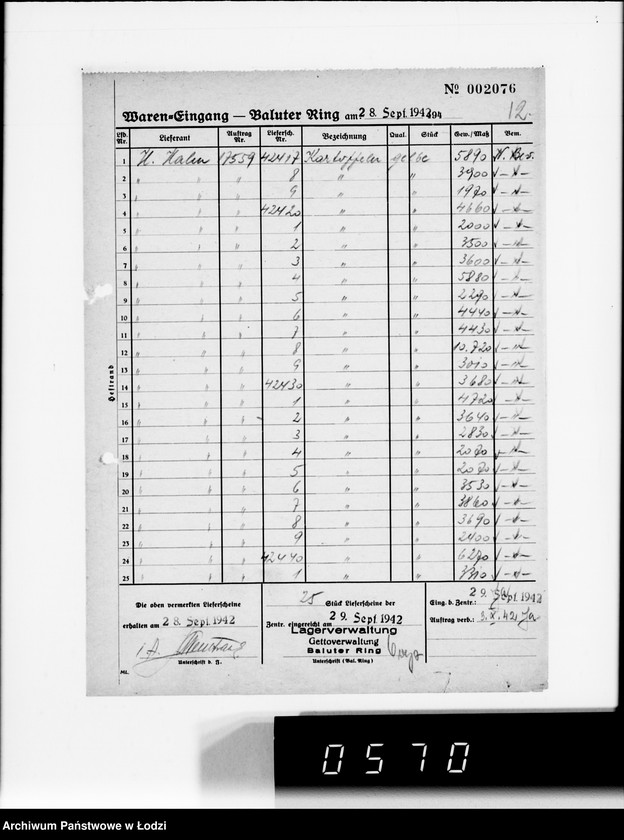 Nº 002076
12.
Waren=Eingang — Baluter Ring am 28. Sept. 1942 194
Lfd. Nr. Lieferant Auftrag Nr. Liefersch. Nr. Bezeichnung Qual. Stück Gew./Maß Bem.
1 H. Hahn 17559 42417 Kartoffeln gelbe 5890
2 " " " 8 " " 3900
3 " " " 9 " " 1970
4 " " " 42420 " " 4660
5 " " " 1 " " 2000
6 " " " 2 " " 3500
7 " " " 3 " " 3600
8 " " " 4 " " 5880
9 " " " 5 " " 2270
10 " " " 6 " " 4440
11 " " " 7 " " 4430
12 " " " 8 " " 10.720
13 " " " 9 " " 3010
14 " " " 42430 " " 3680
15 " " " 1 " " 4720
16 " " " 2 " " 3640
17 " " " 3 " " 2830
18 " " " 4 " " 2070
19 " " " 5 " " 2070
20 " " " 6 " " 3530
21 " " " 7 " " 3860
22 " " " 8 " " 3690
23 " " " 9 " " 2400
24 " " " 42440 " " 6270
25 " " " 1 " "
Heftrand
Die oben vermerkten Lieferscheine
erhalten am 28. Sept. 1942
Unterschrift b. F.
ML.
25 Stück Lieferscheine der
Zentr. eingereicht am 29. Sept. 1942
Lagerverwaltung
Gettoverwaltung
Baluter Ring
Unterschrift (Bal. Ring)
Eing. b. Zentr.: 29. Sept. 1942
Auftrag verb.: 3.X.42
0570
Archiwum Państwowe w Łodzi